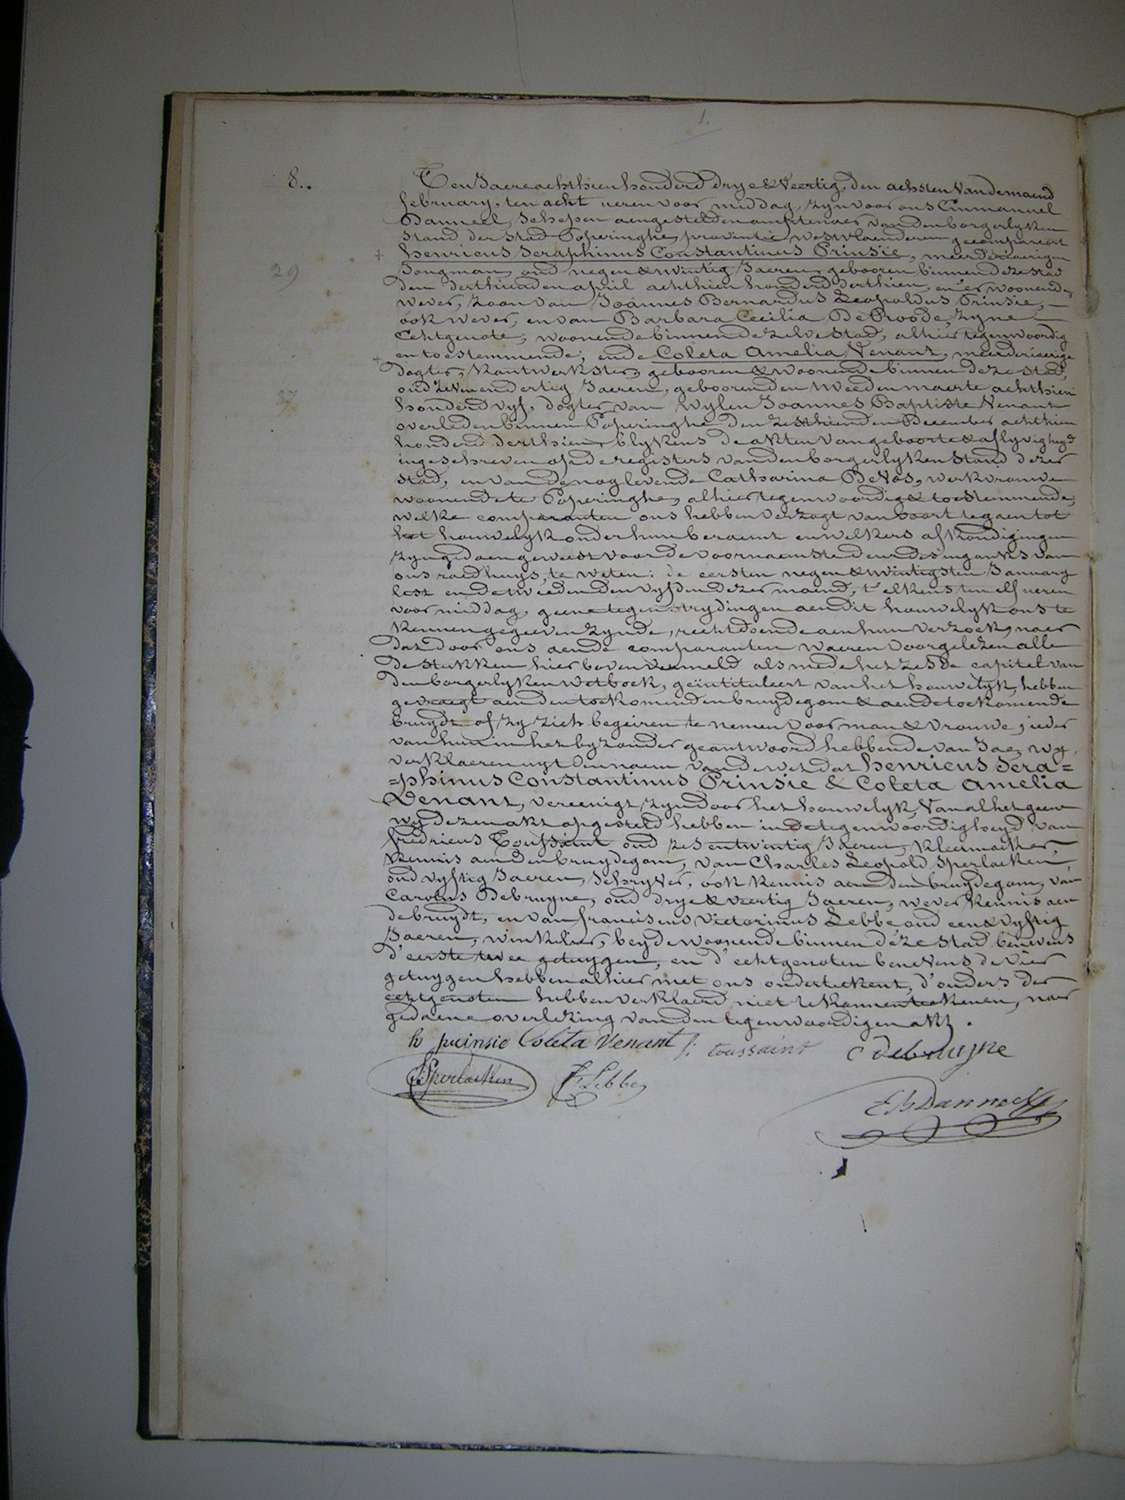 1.
8..
Ten Jaere achthien honderd drye & Veertig, den achsten Van de maend
february, ten acht ueren voor middag, zyn voor ons Emmanuel
Danneel, Schepen aengestelden amptenaer van den borgerlyken
Stand, der Stad Poperinghe, provintie westvlaenderen gecompareert
henricus Seraphinus Constantinus Prinsie, meerderjaerigen
29
Jongman, oud negen & twintig Jaeren, gebooren binnen deze stad
den derthienden april achthien honderd derthien, en er woonende,
wever, zoon van Joannes Bernardus Leopoldus Prinsie,
ook wever, en van Barbara Cecilia De Proode, zyne
Echtgenote, woonende binnen de zelve Stad, alhier tegenwoordig
en toestemmende; ende Coleta Amelia Venant, meerderjaerige
dogter, kantwerkster, gebooren & woonende binnen deze stad,
37
oud zeven en dertig Jaeren, gebooren den tweeden maerte achthien
honderd vyf, dogter van Wylen Joannes Baptiste Venant
overleden binnen Poperinghe den zesthienden December achthien
honderd derthien, blykens de akten van geboorte & aflyvigheyd
ingeschreven op de registers van den borgerlyken Stand dezer
stad, en van de nog levende Catharina DeVos, werkvrouwe
woonende te Poperinghe, alhier tegenwoordig & toestemmende,
welke comparanten ons hebben verzogt van voort te gaen tot
het houwelyk onder hun beraemt en welkers afkondigingen
zyn gedaen geweest voor de voornaemste deur des ingankes van
ons raedhuys, te weten: de eersten negen & twintigsten January
lest en de tweede den vyfden dezer maend, t'elkens ten elf ueren
voor middag, geene tegenstrydingen aen dit houwelyk ons te
kennen gegeeven zynde, rechtdoende aen hun verzoek, naer
dat door ons aen de comparanten waeren voorgelezen alle
de stukken hier boven vermeld als mede het zesde capitel van
den borgerlyken wetboek, geïntituleert van het houwelyk, hebben
gevraegt aen den toekomenden bruydegom & aen de toekomende
bruydt of zy zich begeiren te nemen voor man & vrouwe, ieder
van hun in het byzonder geantwoord hebbende van Jae, wy
verklaeren uyt den naem van de wet dat henricus Sera=
=phinus Constantinus Prinsie & Coleta Amelia
Venant, vereenigt zyn door het houwelyk, Van al het geene
wy dezen akt opgesteld hebben in de tegenwoordigheyd van
fredricus Toussaint oud zes entwintig Jaeren, kleermaeker,
kennis aen den bruydegom, van Charles Leopold Sperlaeken,
oud vyftig Jaeren, Schryver, ook kennis aen den bruydegom, van
Carolus Debruyne, oud drye & veertig Jaeren, wever kennis aen
de bruydt, en van franciscus Victorinus Lebbe oud een & vyftig
Jaeren, winkelier, beyde woonende binnen deze Stad benevens
d'eerste twee getuygen, en d'echtgenoten benevens de vier
getuygen hebben alhier met ons onderteekent, d'ouders der
echtgenoten hebben verklaerd niet te kennen teekenen, naer
gedaene overlezing van den tegenwoordigen akt.
h prinsie Coleta Venant f: toussaint C debruyne
Sperlaeken F. Lebbe